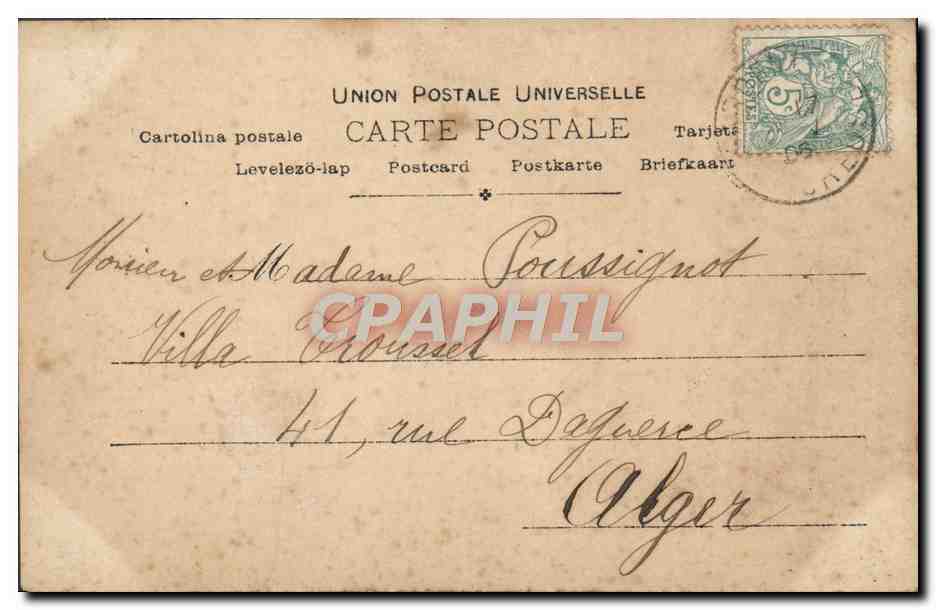 UNION POSTALE UNIVERSELLE
Cartolina postale CARTE POSTALE Tarjeta
Levelezö-lap Postcard Postkarte Briefkaart
5c
05
Monsieur et Madame Poussignot
CPAPHIL
Villa Trousset
41, rue Daguerre
Alger